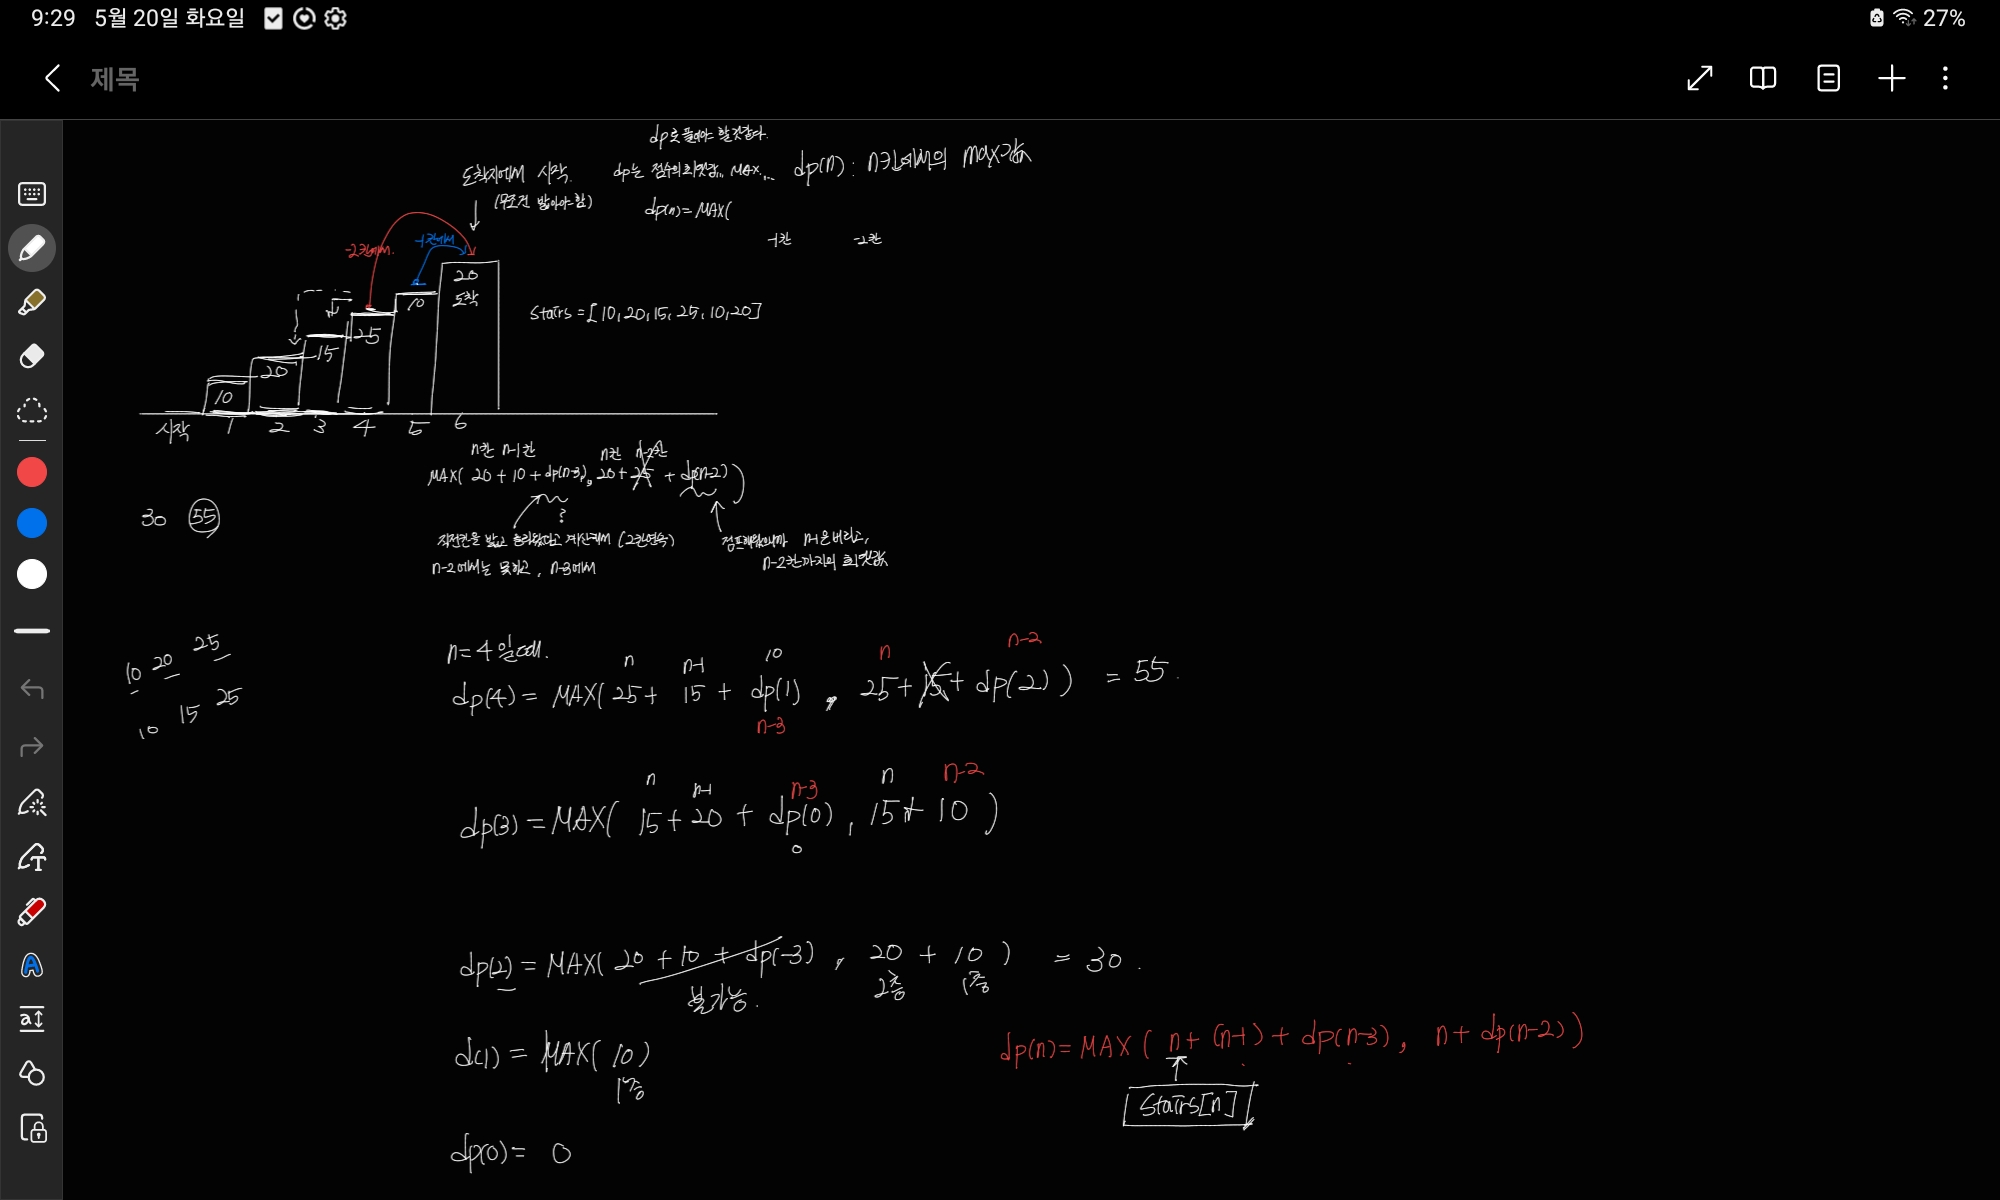 9:29 5월 20일 화요일 27%
제목
dp로 풀어야 할것같다.
도착지에서 시작.
(무조건 밟아야 함)
dp는 점수의 최댓값,, MAX...
dp(n) : n칸에서의 max값
dp(n) = MAX(
-1칸 -2칸
-2칸에서.
-1칸에서
20
도착
10
25
15
20
10
Stairs = [10, 20, 15, 25, 10, 20]
시작 1 2 3 4 5 6
n칸 n-1칸 n칸 n-2칸
MAX( 20 + 10 + dp(n-3), 20 + 25 + dp(n-2))
?
30 55
직전칸을 밟고 올라왔다고 계산해서 (2칸연속)
n-2에서는 못하고, n-3에서
점프해왔으니까 n-1은 버리고,
n-2칸까지의 최댓값
10 20 25
10 15 25
n=4일때.
n n-1 10 n n-2
dp(4) = MAX( 25 + 15 + dp(1) , 25 + 15 + dp(2) ) = 55.
n-3
n n-1 n-3 n n-2
dp(3) = MAX( 15 + 20 + dp(0), 15 + 10 )
0
dp(2) = MAX( 20 + 10 + dp(-3) , 20 + 10 ) = 30.
불가능. 2층 1층
d(1) = MAX( 10 )
1층
dp(n) = MAX( n + (n-1) + dp(n-3), n + dp(n-2))
Stairs[n]
dp(0) = 0